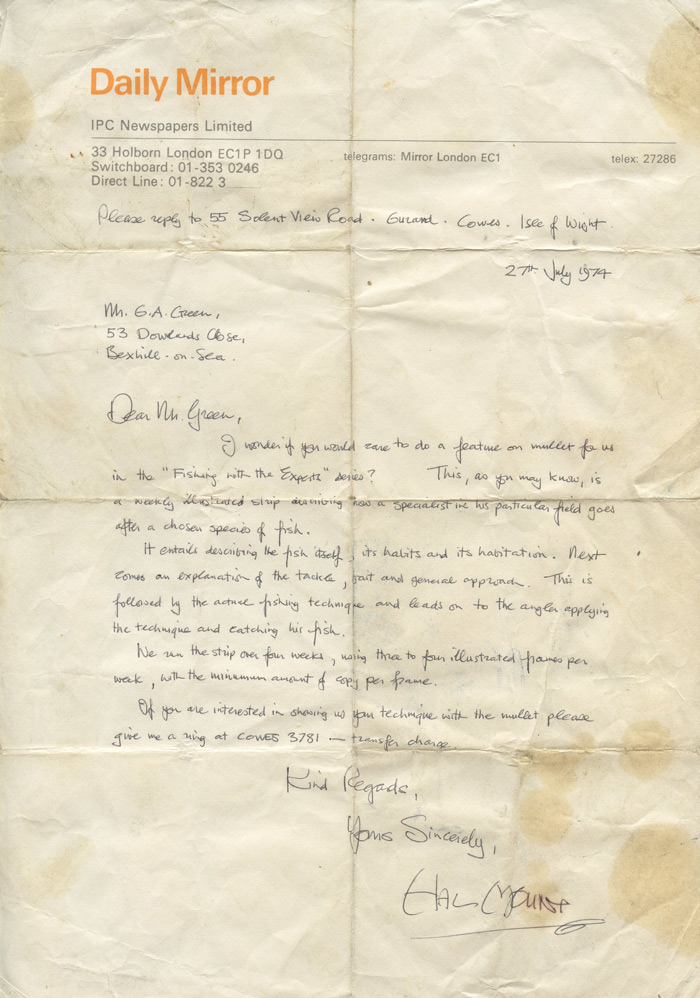 Daily Mirror
IPC Newspapers Limited
33 Holborn London EC1P 1DQ telegrams: Mirror London EC1 telex: 27286
Switchboard: 01-353 0246
Direct Line: 01-822 3
Please reply to 55 Solent View Road. Gurnard. Cowes. Isle of Wight.
27th July 1974
Mr. G.A. Green,
53 Dowlands Close,
Bexhill-on-Sea.
Dear Mr. Green,
I wonder if you would care to do a feature on mullet for us
in the "Fishing with the Experts" series? This, as you may know, is
a weekly illustrated strip describing how a specialist in his particular field goes
after a chosen species of fish.
It entails describing the fish itself, its habits and its habitation. Next
comes an explanation of the tackle, bait and general approach. This is
followed by the actual fishing technique and leads on to the angler applying
the technique and catching his fish.
We run the strip over four weeks, using three to four illustrated frames per
week, with the minimum amount of copy per frame.
If you are interested in showing us your technique with the mullet please
give me a ring at COWES 3781 — transfer charge.
Kind Regards,
Yours Sincerely,
Hal Mount